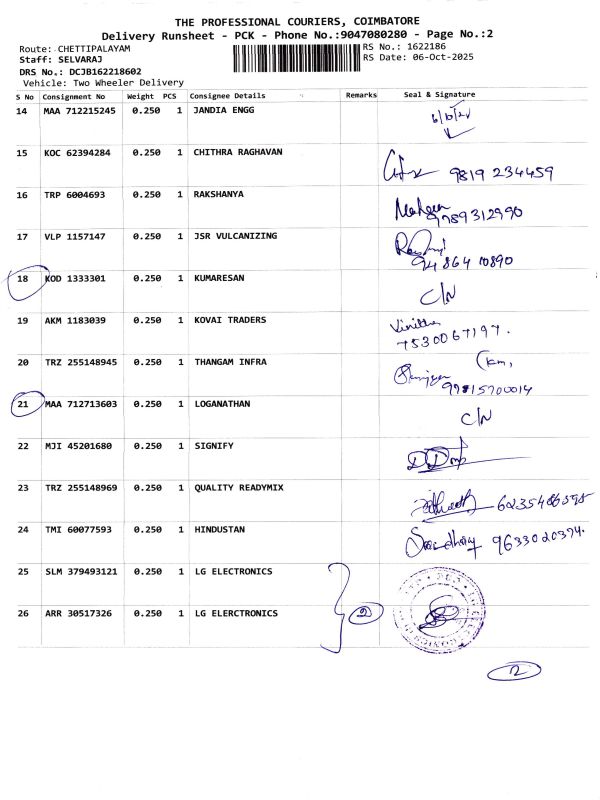 THE PROFESSIONAL COURIERS, COIMBATORE
Delivery Runsheet - PCK - Phone No.:9047080280 - Page No.:2
Route: CHETTIPALAYAM
RS No.: 1622186
Staff: SELVARAJ
RS Date: 06-Oct-2025
DRS No.: DCJB162218602
Vehicle: Two Wheeler Delivery
S No Consignment No Weight PCS Consignee Details Remarks Seal & Signature
14 MAA 712215245 0.250 1 JANDIA ENGG
15 KOC 62394284 0.250 1 CHITHRA RAGHAVAN 9819 234459
16 TRP 6004693 0.250 1 RAKSHANYA 9789312990
17 VLP 1157147 0.250 1 JSR VULCANIZING 94 864 10890
18 KOD 1333301 0.250 1 KUMARESAN C/N
19 AKM 1183039 0.250 1 KOVAI TRADERS
7530067197.
20 TRZ 255148945 0.250 1 THANGAM INFRA
21 MAA 712713603 0.250 1 LOGANATHAN C/N
22 MJI 45201680 0.250 1 SIGNIFY
23 TRZ 255148969 0.250 1 QUALITY READYMIX
24 TMI 60077593 0.250 1 HINDUSTAN 9633020374.
25 SLM 379493121 0.250 1 LG ELECTRONICS
26 ARR 30517326 0.250 1 LG ELERCTRONICS 2
12